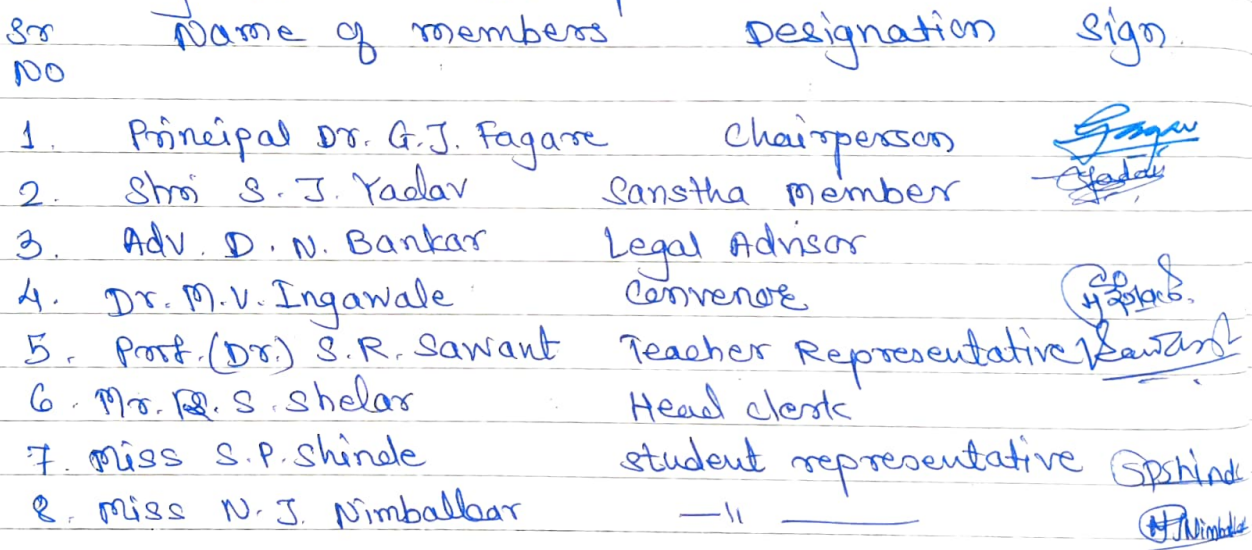 Sr Name of members Designation Sign.
No
1. Principal Dr. G.J. Fagare Chairperson
2. Shri S. J. Yadav Sanstha Member
3. Adv. D. N. Bankar Legal Advisor
4. Dr. M.V. Ingawale Convenor
5. Prof. (Dr.) S.R. Sawant Teacher Representative Sawant
6. Mr. S. Shelar Head clerk
7. Miss S.P. Shinde student representative Spshinde
8. Miss N. J. Nimbalkar —11—